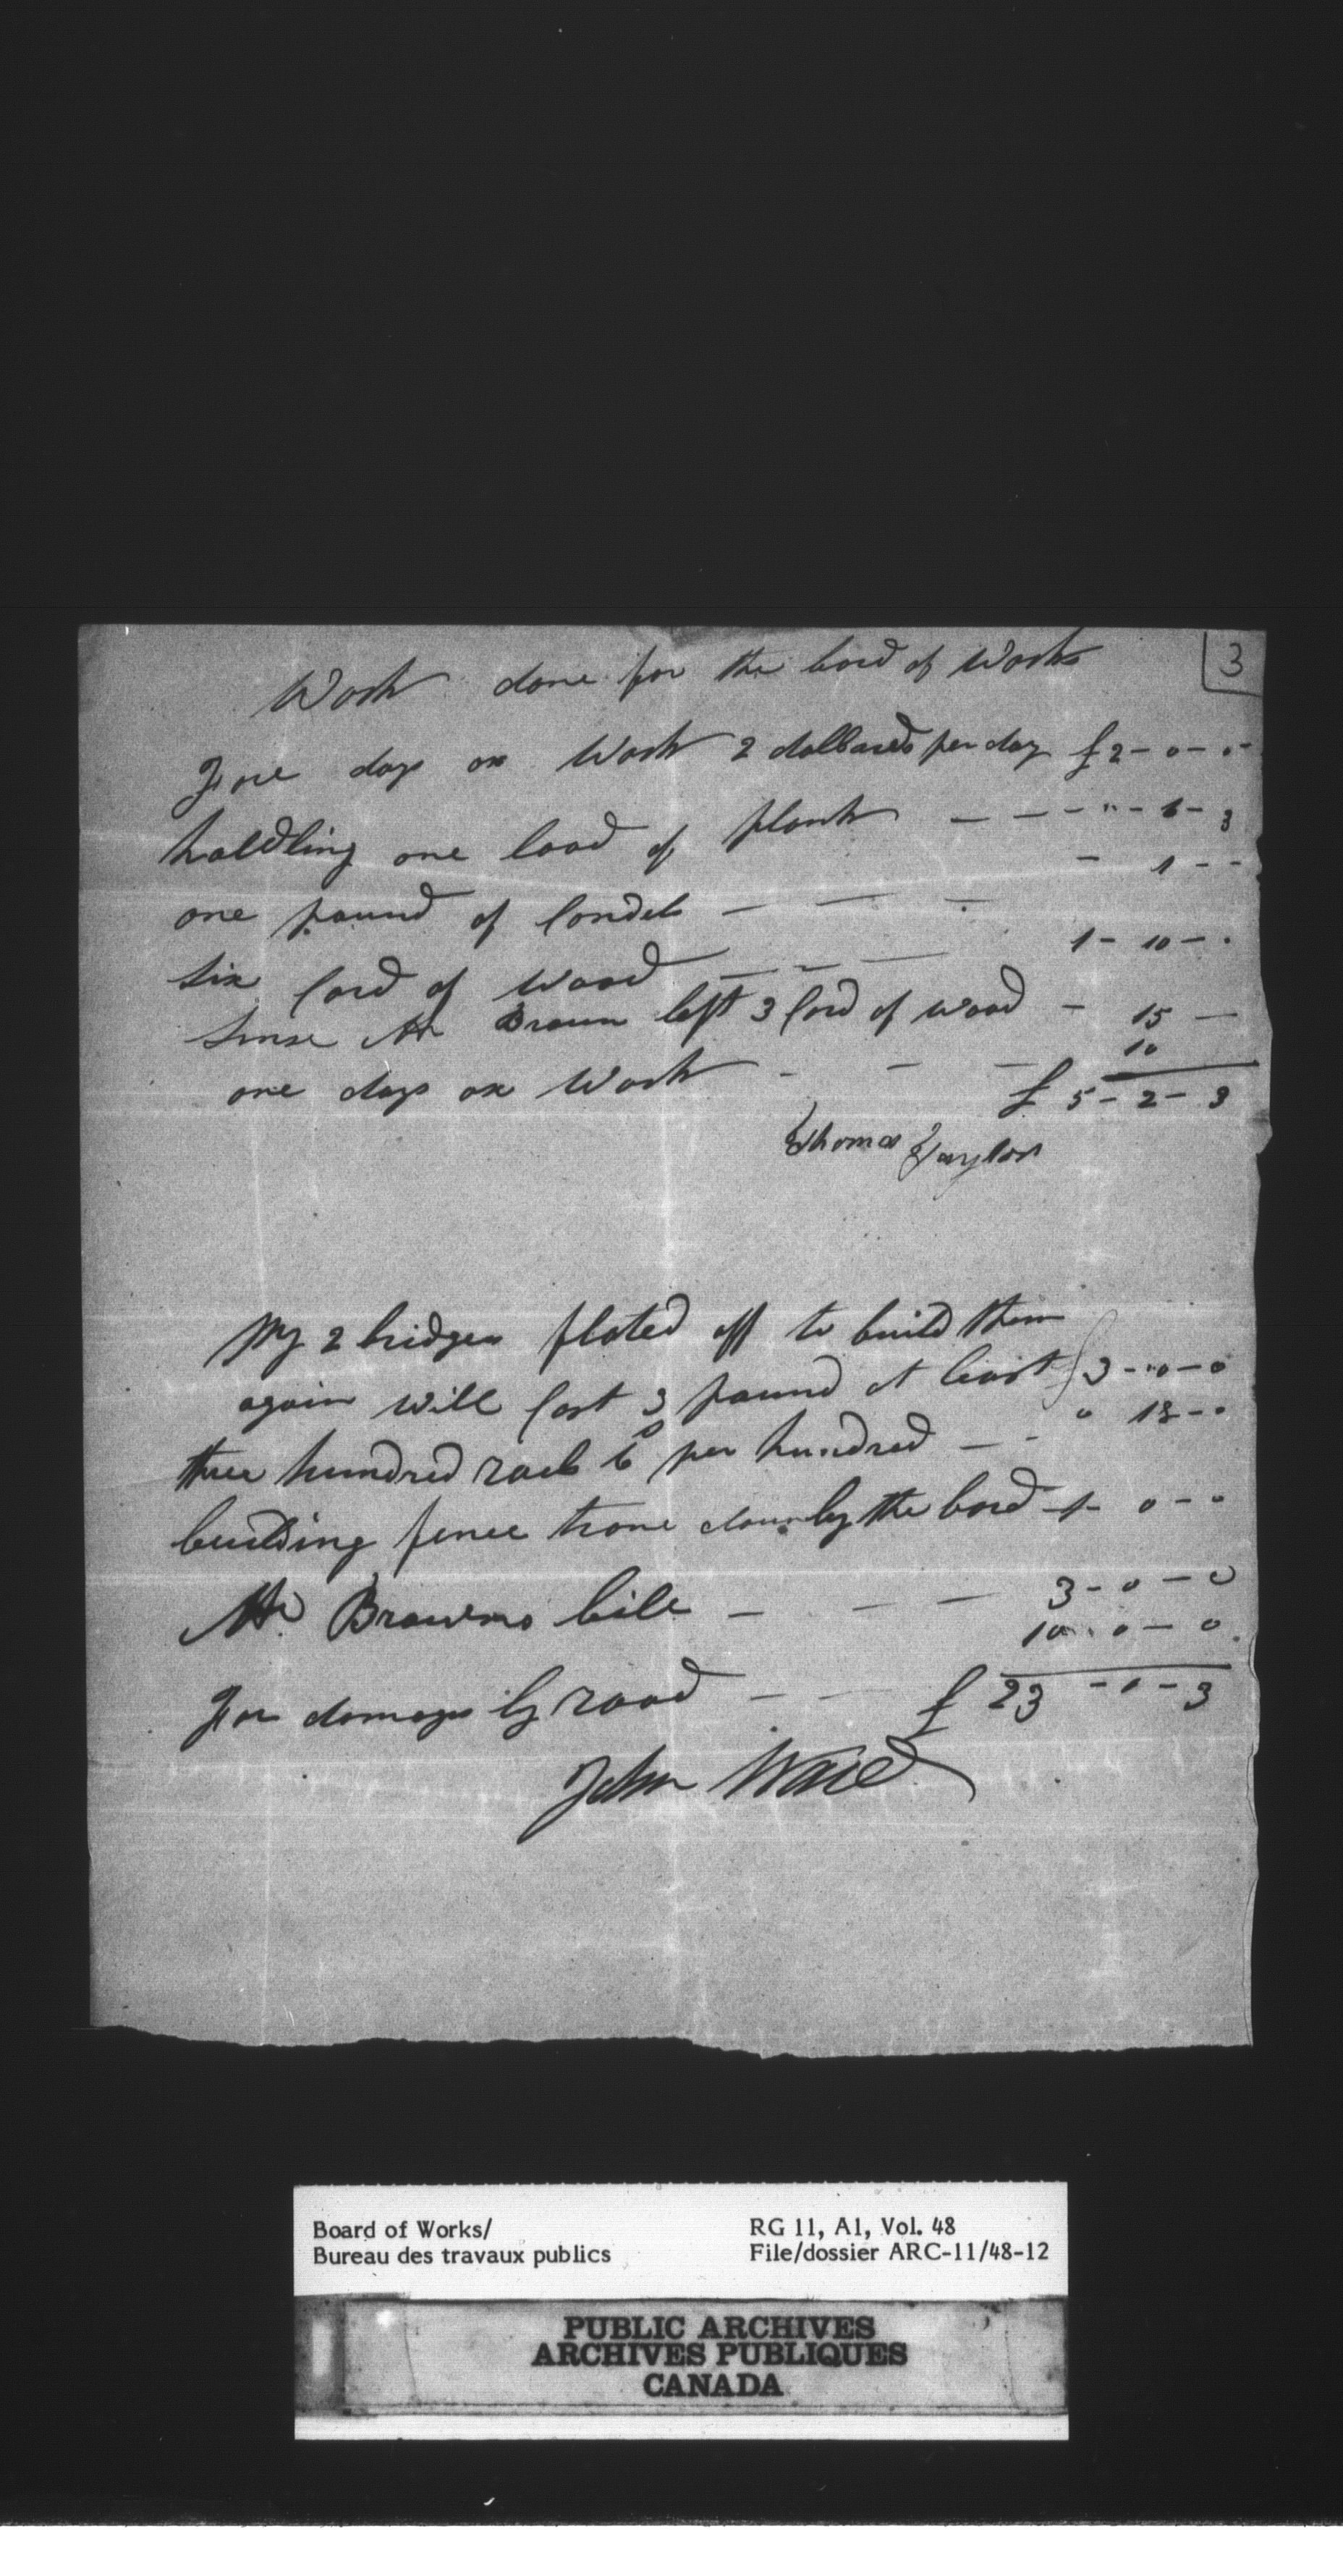 3
Work done for the bord of Works
Fore days ox Work 2 dollards per day £ 2 - 0 - 0 -
halldling one load of plank - - - " - 6 - 3
one pound of Condels - - - - 1 - -
six Cord of Wood - - - 1 - 10 - .
sinse Mr Brown left 3 Cord of wood - 15 -
one days ox Work - - - 10
£ 5 - 2 - 3
Thomas Taylor
My 2 bridges floted off to build them
again will Cost 3 pound at least 3 - " 0 - 0
three hundred rails 6 per hundred - - 0 18 - 0
building fence trone down by the bord - 1 - 0 - 0
Mr Browns bill - - - 3 - 0 - 0
For damage by road - - 10 . 0 - 0
£ 23 - 1 - 3
John
Board of Works/
Bureau des travaux publics
RG 11, A1, Vol. 48
File/dossier ARC-11/48-12
PUBLIC ARCHIVES
ARCHIVES PUBLIQUES
CANADA